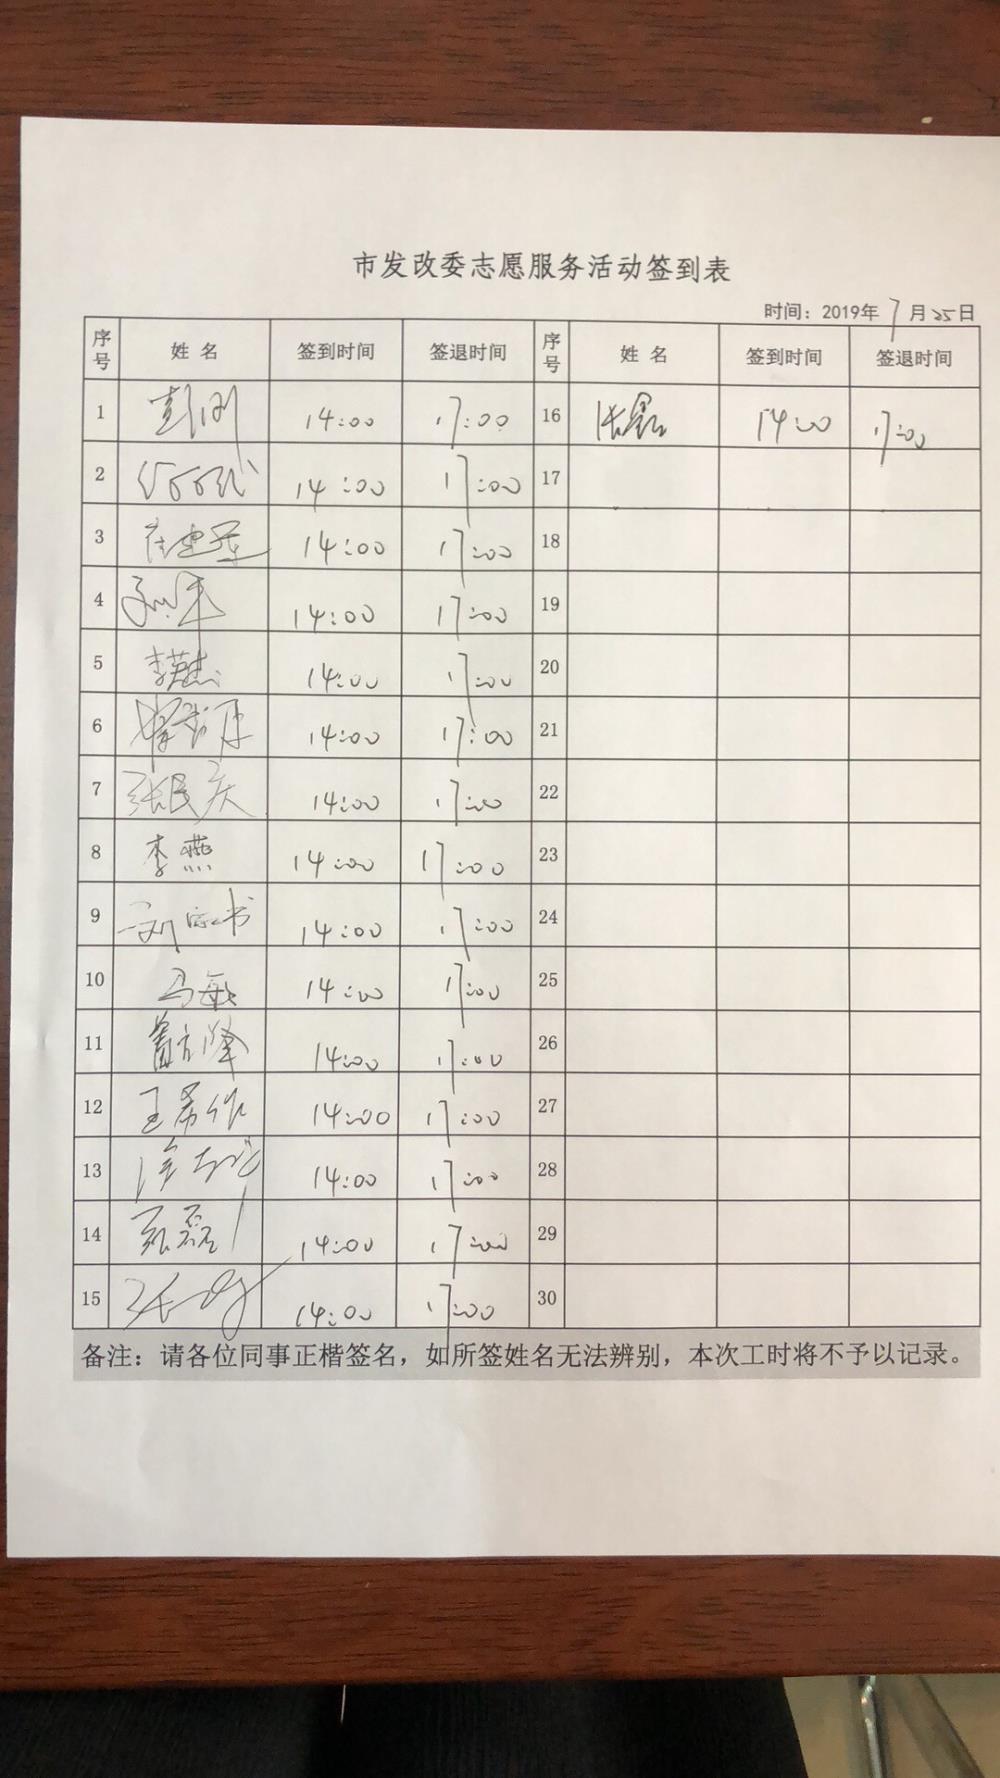 市发改委志愿服务活动签到表
时间：2019年7月25日
序号 姓 名 签到时间 签退时间 序号 姓 名 签到时间 签退时间
1 彭刚 14:00 17:00 16 张磊 14:00 17:00
2 14:00 17:00 17
3 崔建军 14:00 17:00 18
4 14:00 17:00 19
5 李 14:00 17:00 20
6 14:00 17:00 21
7 张民庆 14:00 17:00 22
8 李燕 14:00 17:00 23
9 刘 书 14:00 17:00 24
10 马敏 14:00 17:00 25
11 14:00 17:00 26
12 王希 14:00 17:00 27
13 徐 14:00 17:00 28
14 磊 14:00 17:00 29
15 张 14:00 17:00 30
备注：请各位同事正楷签名，如所签姓名无法辨别，本次工时将不予以记录。